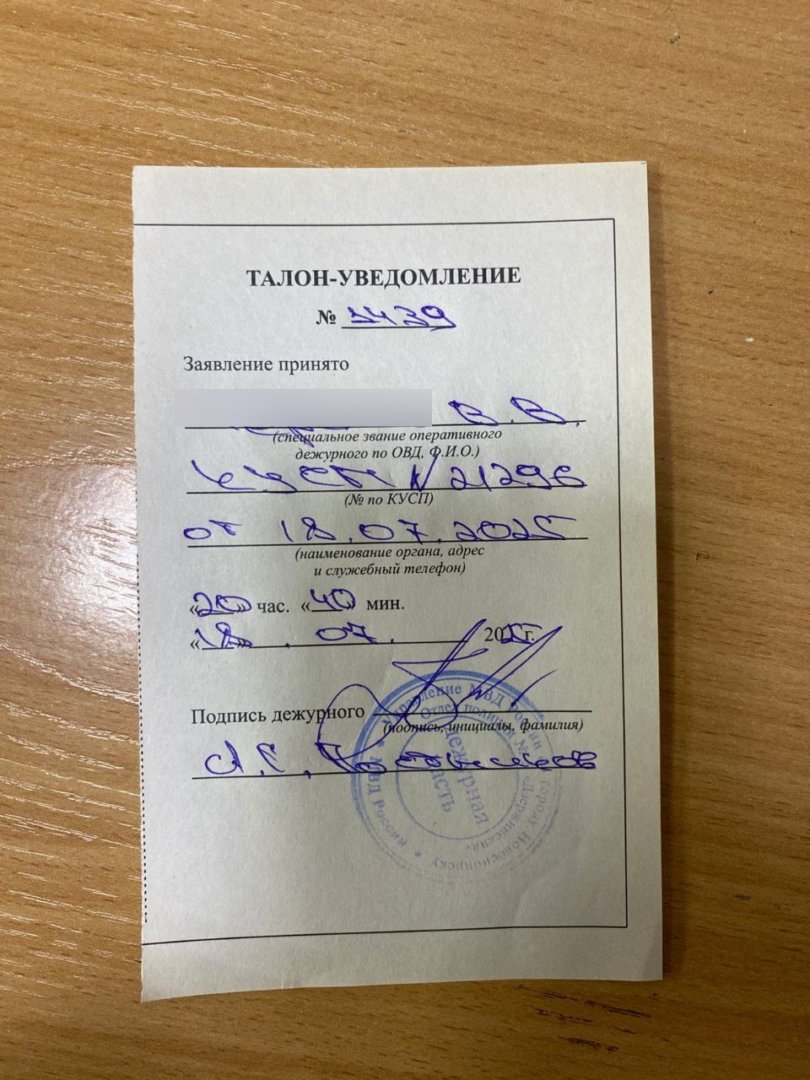 ТАЛОН-УВЕДОМЛЕНИЕ
№ 1439
Заявление принято
В.В.
(специальное звание оперативного
дежурного по ОВД, Ф.И.О.)
КУСП № 21296
(№ по КУСП)
от 18.07.2025
(наименование органа, адрес
и служебный телефон)
«20» час. «40» мин.
«18» . 07. 2025г.
Подпись дежурного
(подпись, инициалы, фамилия)
А.С.
Управление МВД России по городу Новосибирску
* МВД России *
Отдел полиции № «Дзержинский»
Дежурная
часть